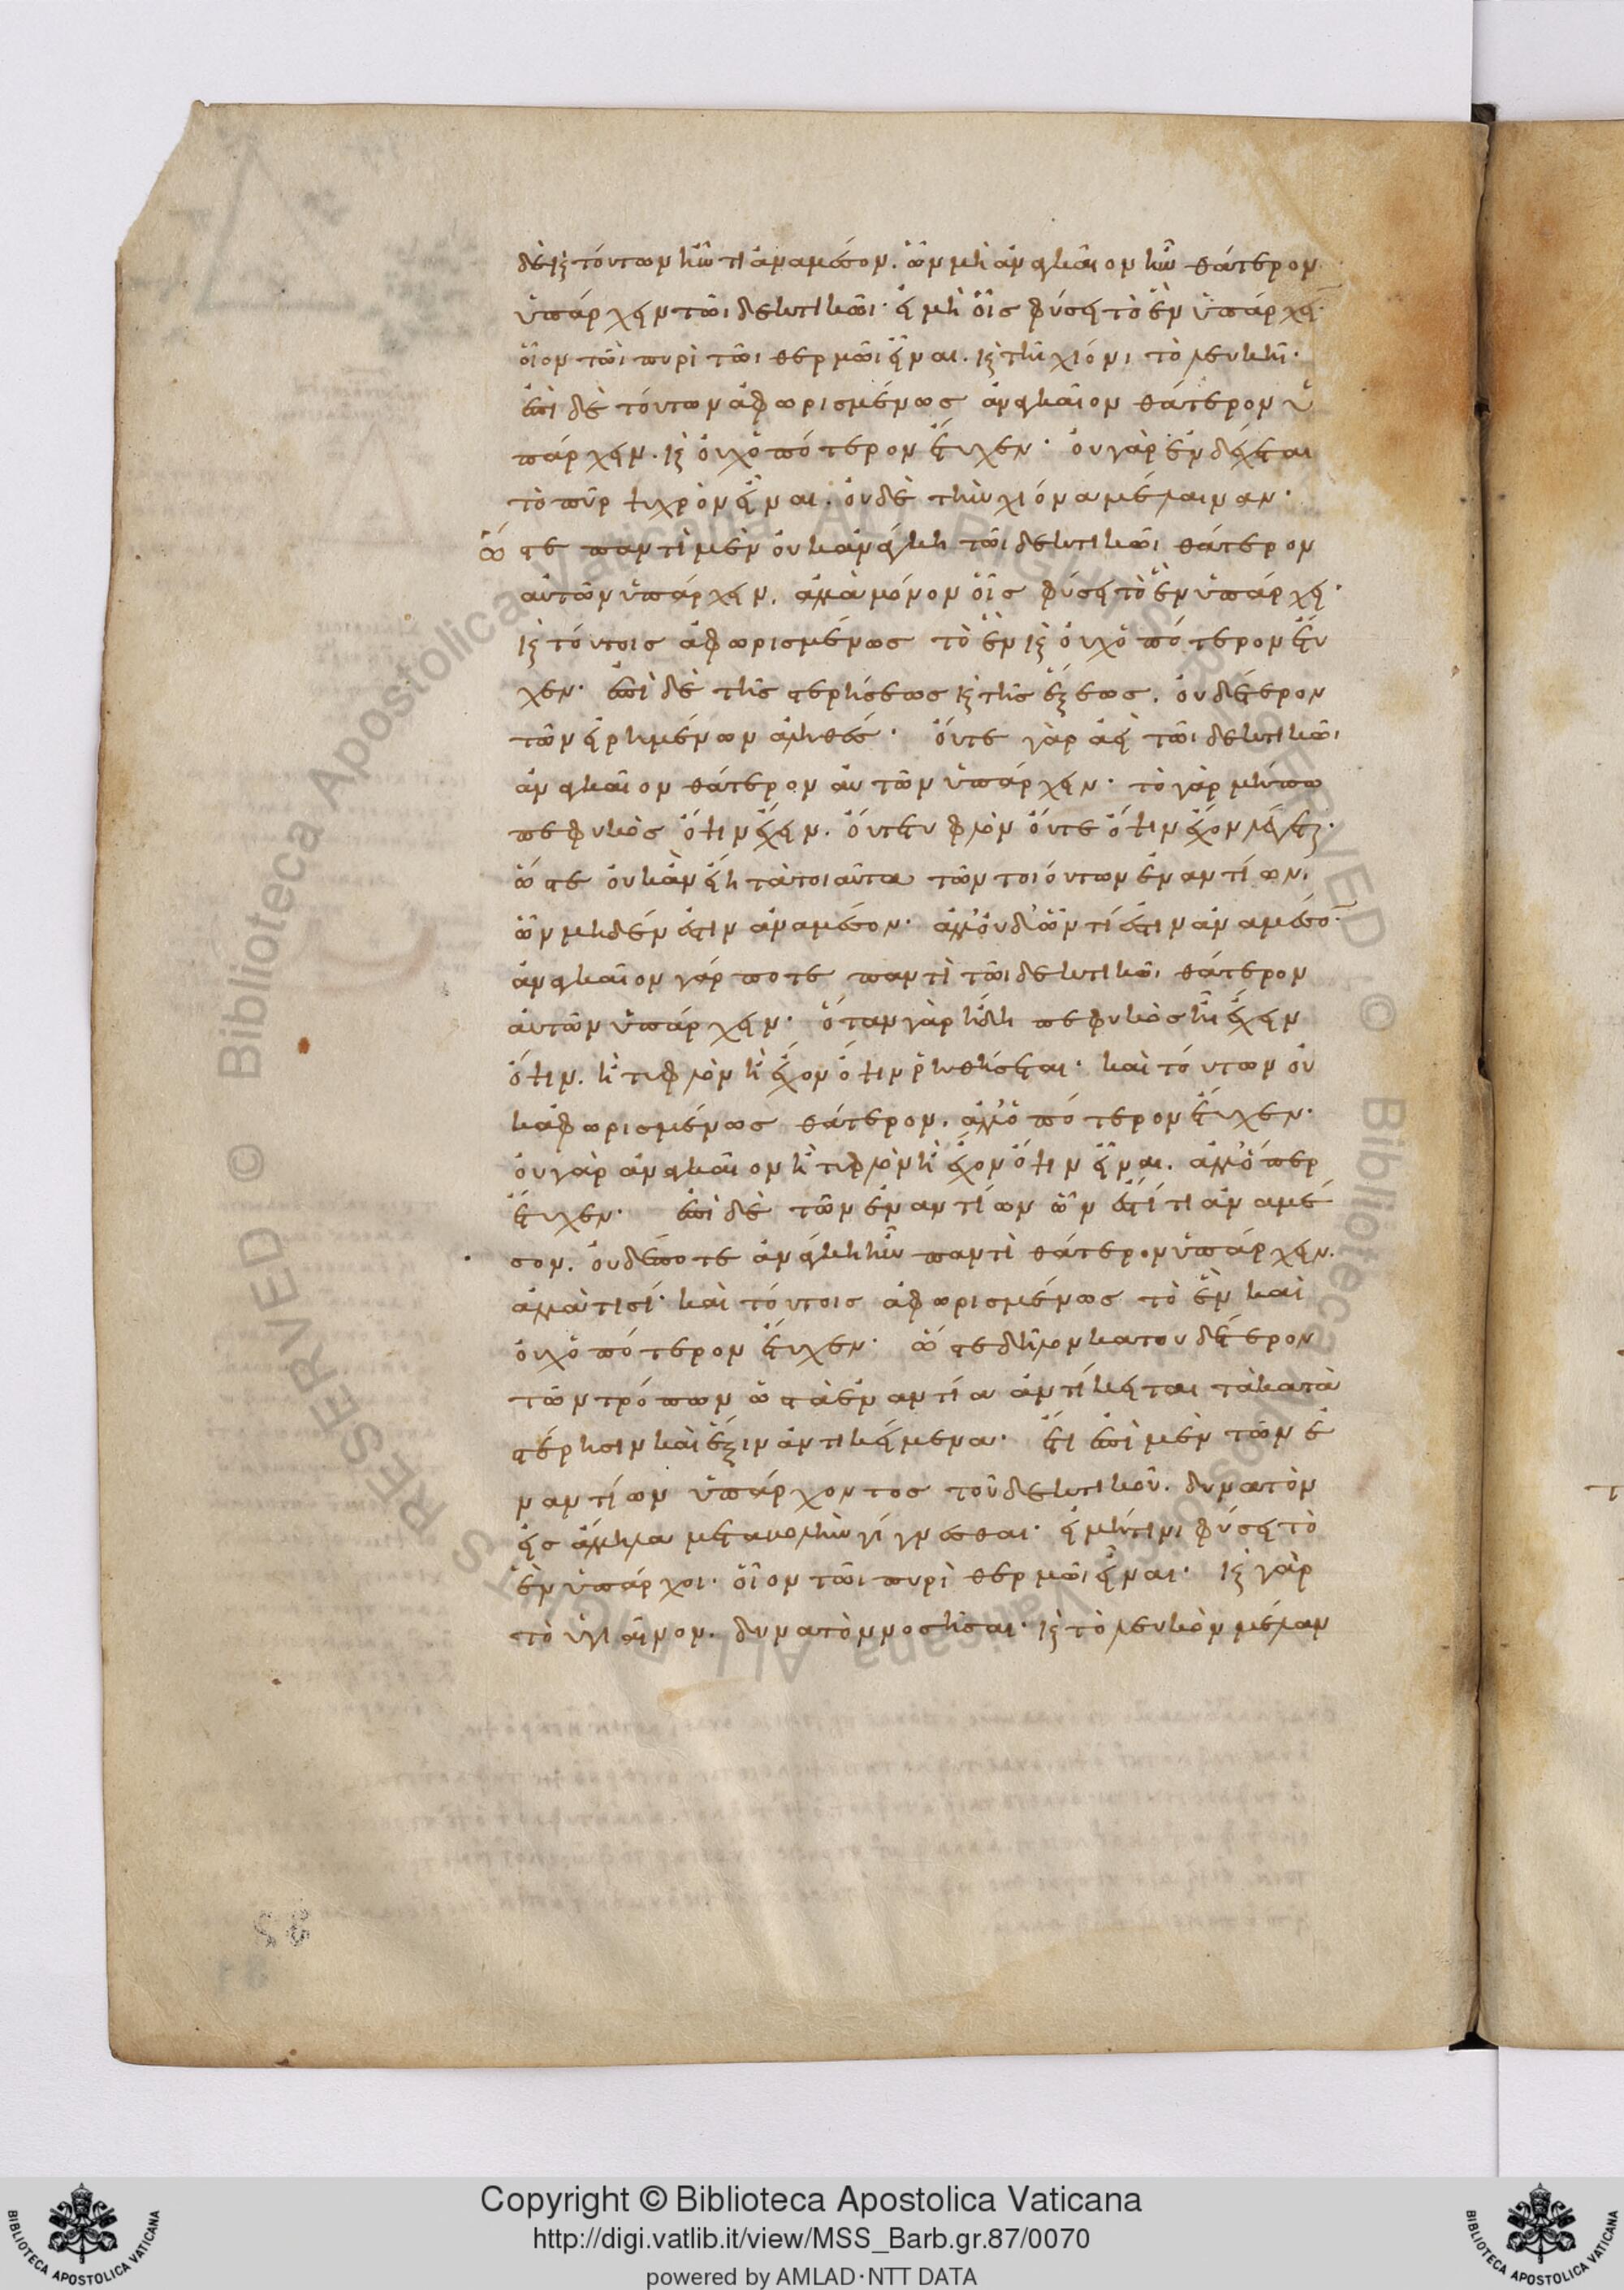 δὲ καὶ τούτων ἦν τι ἀναμέσον. ὧν μὴ ἀναγκαῖον ἦν θάτερον
ὑπάρχειν τῶι δεκτικῶι· εἰ μὴ οἷς φύσει τὸ ἓν ὑπάρχει·
οἷον τῶι πυρὶ τῶι θερμῶι εἶναι. καὶ τῆι χιόνι τὸ λευκῆι·
ἐπὶ δὲ τούτων ἀφωρισμένως ἀναγκαῖον θάτερον ὑ
πάρχειν. καὶ οὐχ ὁπότερον ἔτυχεν· οὐ γὰρ ἐνδέχεται
τὸ πῦρ ψυχρὸν εἶναι. οὐδὲ τὴν χιόνα μέλαιναν·
ὥστε παντὶ μὲν οὐκ ἀνάγκη τῶι δεκτικῶι θάτερον
αὐτῶν ὑπάρχειν. ἀλλὰ μόνον οἷς φύσει τὸ ἓν ὑπάρχει·
καὶ τούτοις ἀφωρισμένως τὸ ἓν καὶ οὐχ ὁπότερον ἔτυ
χεν· ἐπὶ δὲ τῆς στερήσεως καὶ τῆς ἕξεως. οὐδέτερον
τῶν εἰρημένων ἀληθές· οὔτε γὰρ ἀεὶ τῶι δεκτικῶι
ἀναγκαῖον θάτερον αὐτῶν ὑπάρχειν· τὸ γὰρ μήπω
πεφυκὸς ὄψιν ἔχειν. οὔτε τυφλὸν οὔτε ὄψιν ἔχον λέγεται·
ὥστε οὐκ ἂν εἴη τὰ τοιαῦτα τῶν τοιούτων ἐναντίων.
ὧν μηδέν ἐστιν ἀναμέσον· ἀλλ' οὐδ' ὧν τί ἐστιν ἀναμέσον·
ἀναγκαῖον γάρ ποτε παντὶ τῶι δεκτικῶι θάτερον
αὐτῶν ὑπάρχειν· ὅταν γὰρ ἤδη πεφυκὸς ἦι ἔχειν
ὄψιν. ἢ τυφλὸν ἢ ἔχον ὄψιν ῥηθήσεται· καὶ τούτων οὐ
κ ἀφωρισμένως θάτερον. ἀλλ' ὁπότερον ἔτυχεν·
οὐ γὰρ ἀναγκαῖον ἢ τυφλὸν ἢ ἔχον ὄψιν εἶναι. ἀλλ' ὅπερ
ἔτυχεν· ἐπὶ δὲ τῶν ἐναντίων ὧν ἐστί τι ἀναμέ
σον. οὐδέποτε ἀνάγκη ἦν παντὶ θάτερον ὑπάρχειν.
ἀλλά τισί· καὶ τούτοις ἀφωρισμένως τὸ ἓν καὶ
οὐχ ὁπότερον ἔτυχεν· ὥστε δῆλον κατ' οὐδέτερον
τῶν τρόπων ὡς τὰ ἐναντία ἀντίκειται τὰ κατὰ
στέρησιν καὶ ἕξιν ἀντικείμενα· ἔτι ἐπὶ μὲν τῶν ἐ
ναντίων ὑπάρχοντος τοῦ δεκτικοῦ. δυνατὸν
εἰς ἄλληλα μεταβολὴν γίγνεσθαι· εἰ μή τινι φύσει τὸ
ἓν ὑπάρχοι· οἷον τῶι πυρὶ θερμῶι εἶναι· καὶ γὰρ
τὸ ὑγιαῖνον. δυνατὸν νοσῆσαι· καὶ τὸ λευκὸν μέλαν
Copyright © Biblioteca Apostolica Vaticana
http://digi.vatlib.it/view/MSS_Barb.gr.87/0070
powered by AMLAD·NTT DATA